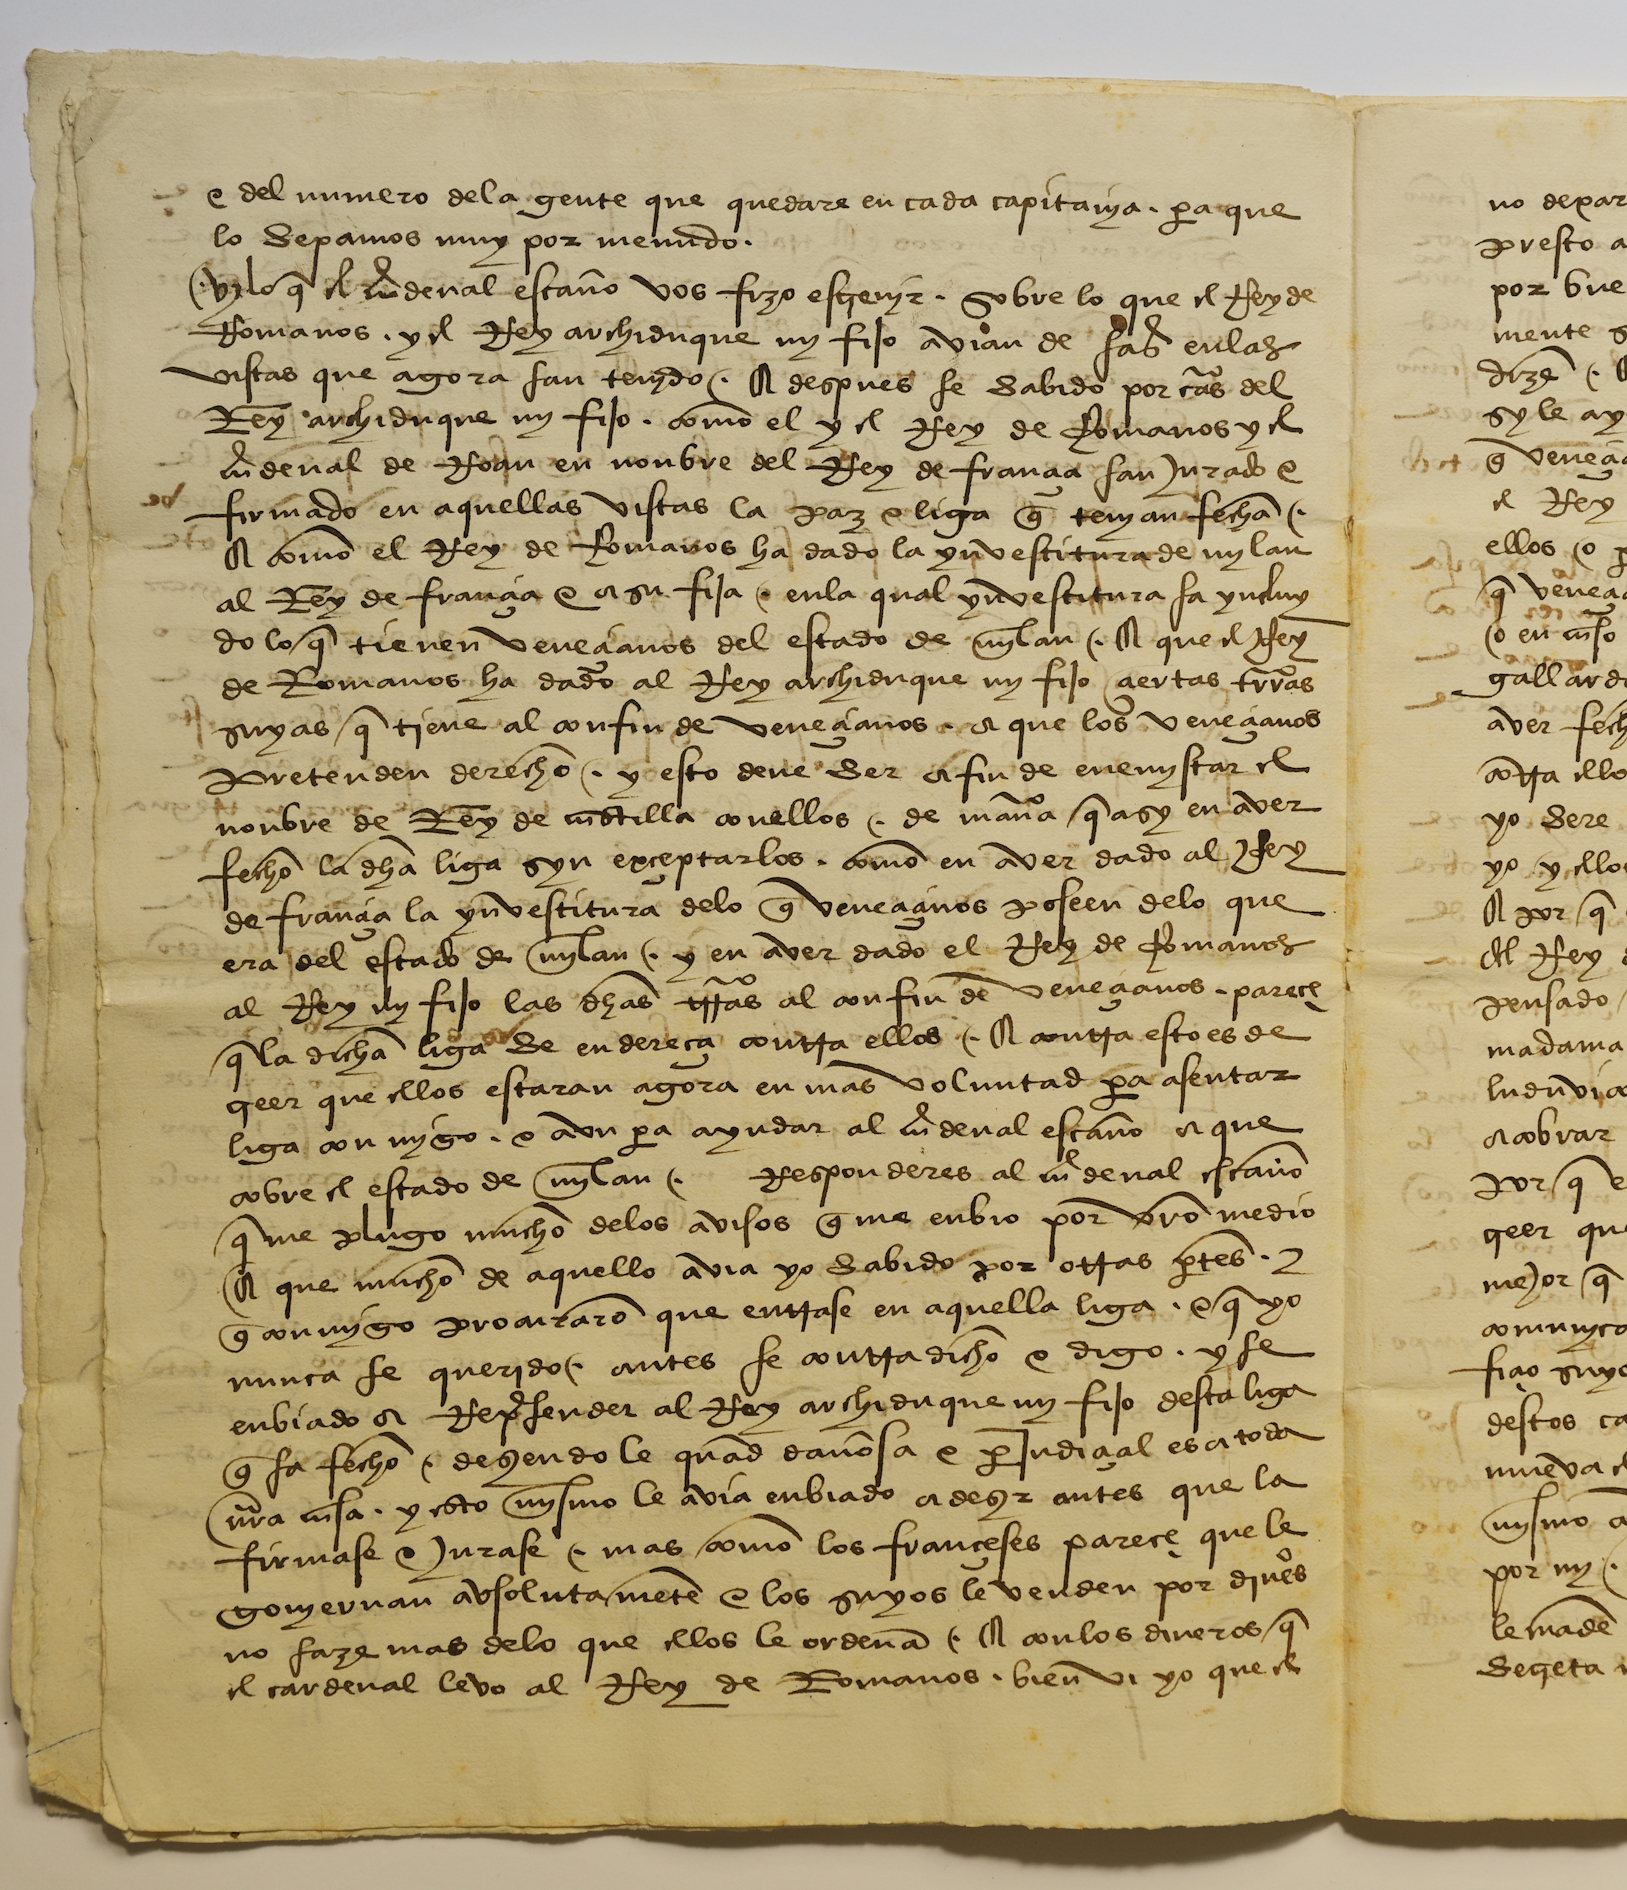 e del numero dela gente que quedare en cada capitanya . pa que
lo Sepamos muy por menudo .
vy lo q̃ el cardenal escanio vos fizo escrevir . Sobre lo que el Rey de
Romanos . y el Rey archiduque my fijo avian de fazer enlas
vistas que agora han tenydo (. A despues he Sabido por cr̃as del
Rey archiduque my fijo . como el y el Rey de Romanos y el
cardenal de Roan en nonbre del Rey de francia han Jurado e
firmado en aquellas vistas la paz e liga q̃ tenyan fecha (.
A como el Rey de Romanos ha dado la ynvestitura de mylan
al Rey de francia e a su fija (. enla qual ynvestitura ha ynclui
do lo q̃ tienen venecianos del estado de mylan (. A que el Rey
de Romanos ha dado al Rey archiduque my fijo ciertas trr̃as
suyas q̃ tiene al confin de venecianos . a que los venecianos
pretenden derecho (. y esto deve Ser a fin de enemystar el
nonbre de Rey de castilla conellos (. de man̾a q̃ asy en aver
fecho la dha liga syn exceptarlos . como en aver dado al Rey
de francia la ynvestitura delo q̃ venecianos poseen delo que
era del estado de mylan (. y en aver dado el Rey de Romanos
al Rey my fijo las dhas trr̃as al confin de venecianos . pareçe
q̃ la dicha liga Se endereça contra ellos (. A contra esto es de
creer que ellos estaran agora en mas voluntad pa asentar
liga con mygo . e avn pa ayudar al cardenal escanio a que
cobre el estado de mylan (. Responderes al cardenal escanio
q̃ me plugo mucho delos avisos q̃ me enbio por vr̃o medio
A que mucho de aquello avia yo Sabido por otras ptes . 2
q̃ conmygo procuraron que entrase en aquella liga . e q̃ yo
nunca he querido (. antes he contradicho e digo . y he
enbiado a Reprehender al Rey archiduque my fijo desta liga
q̃ ha fecho (. deziendo le quand dañosa e pJudicial es a toda
nr̃a casa . y esto mysmo le avia enbiado a dezir antes que la
firmase e Jurase (. mas como los françeses pareçe que le
goviernan absolutamete e los suyos le venden por din̾os
no faze mas delo que ellos le ordenã (. A con los dineros q̃
el cardenal levo al Rey de Romanos . bien vi yo que el
no dexar
presto a
por bue
mente s
dize (. A
sy le ay
q̃ veneci
el Rey
ellos (o p
q̃ veneci
(o en caso
gallarda
aver fech
contra ello
yo Sere
yo y ellos
A por q̃
del Rey
pensado
madama
ludovico
a cobrar
por q̃ e
creer que
mejor q̃
comunyca
destos ca
nueva
mysmo a
por my (.
le made
Secreta